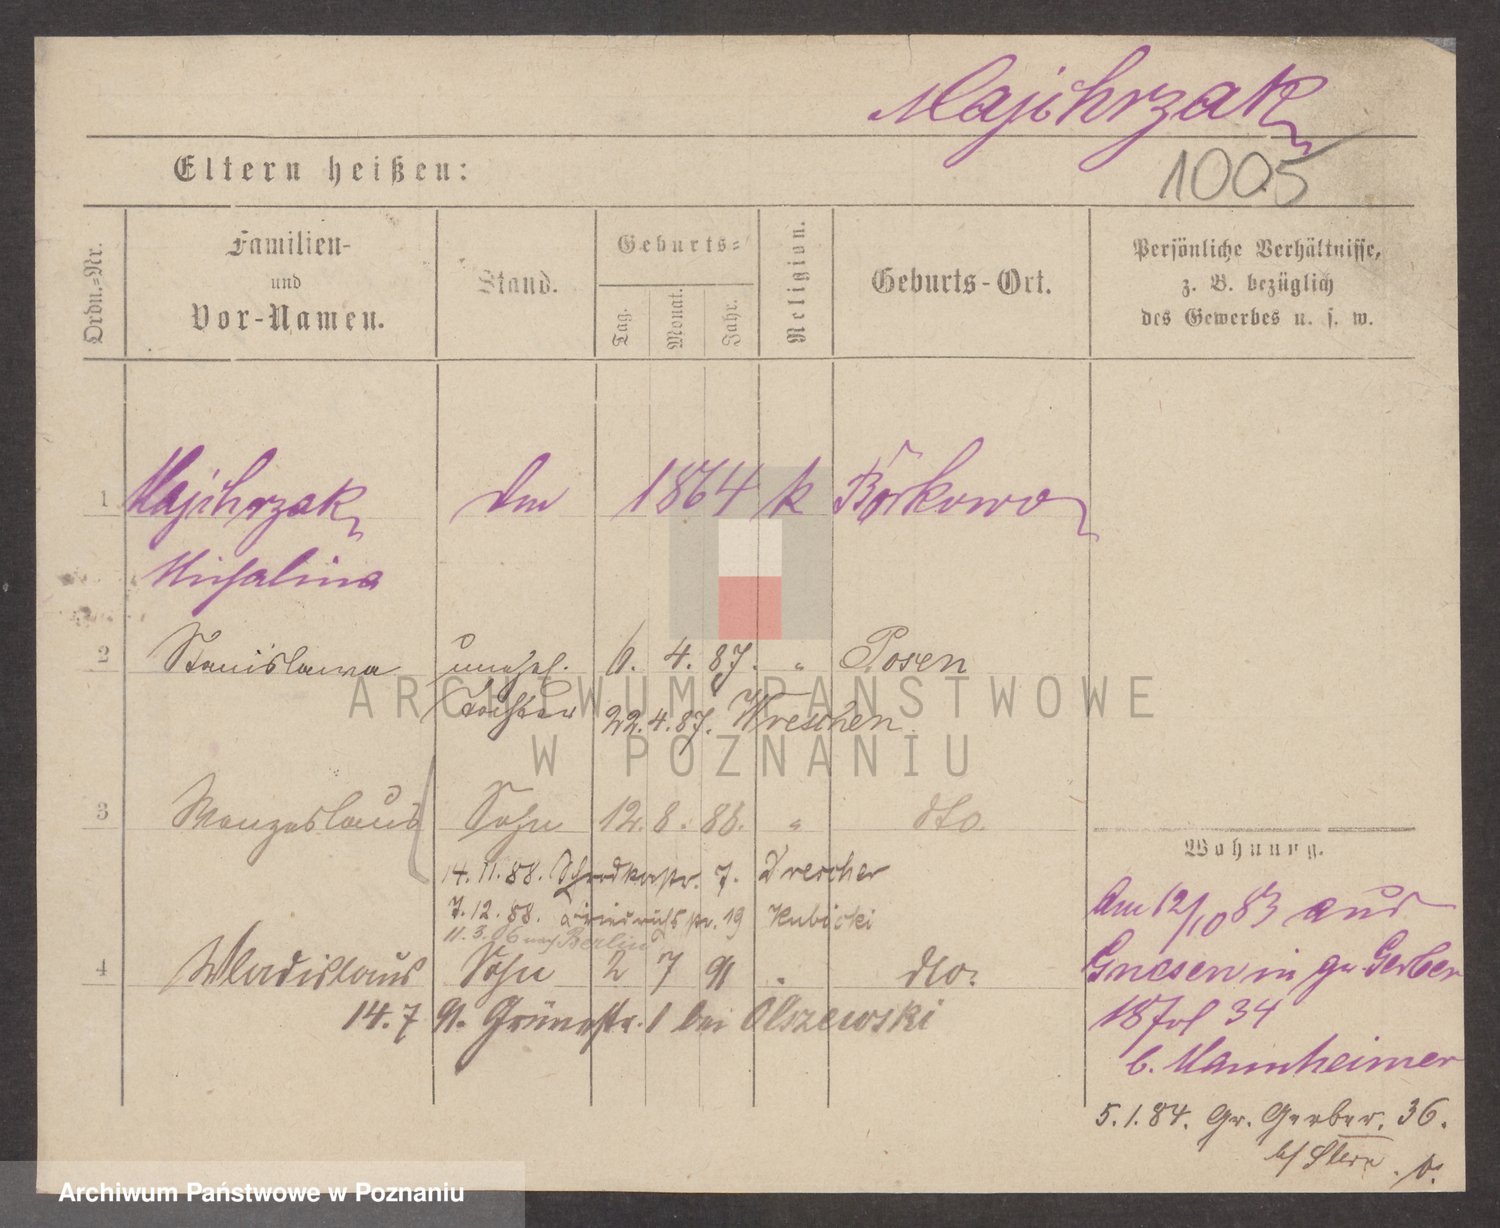 Majchrzak
1005
Eltern heißen:
Ordn.-Nr.
Familien-
und
Vor-Namen.
Stand.
Geburts-
Tag.
Monat.
Jahr.
Religion.
Geburts-Ort.
Persönliche Verhältnisse,
z. B. bezüglich
des Gewerbes u. s. w.
1 Majchrzak 1864 k Borkowo
Michalina
2 Stanislawa unehel. 6. 4. 87. " Posen
Tochter 22. 4. 87. Wreschen
3 Wenzeslaus Sohn 12. 8. 88. " dto.
14. 11. 88. Schrodkastr. 7. Drescher
7. 12. 88. 19 Kubicki
11. 3. 06 nach Berlin
4 Wladislaus Sohn 2 7 91 " dto.
14. 7 91. Grünestr. 1 bei Olszewski
Wohnung.
Am 12/10 83 aus
Gnesen in gr Gerber
18 34
b. Mannheimer
5. 1. 84. Gr. Gerber. 36.
b/ Stern
ARCHIWUM PAŃSTWOWE
W POZNANIU
Archiwum Państwowe w Poznaniu